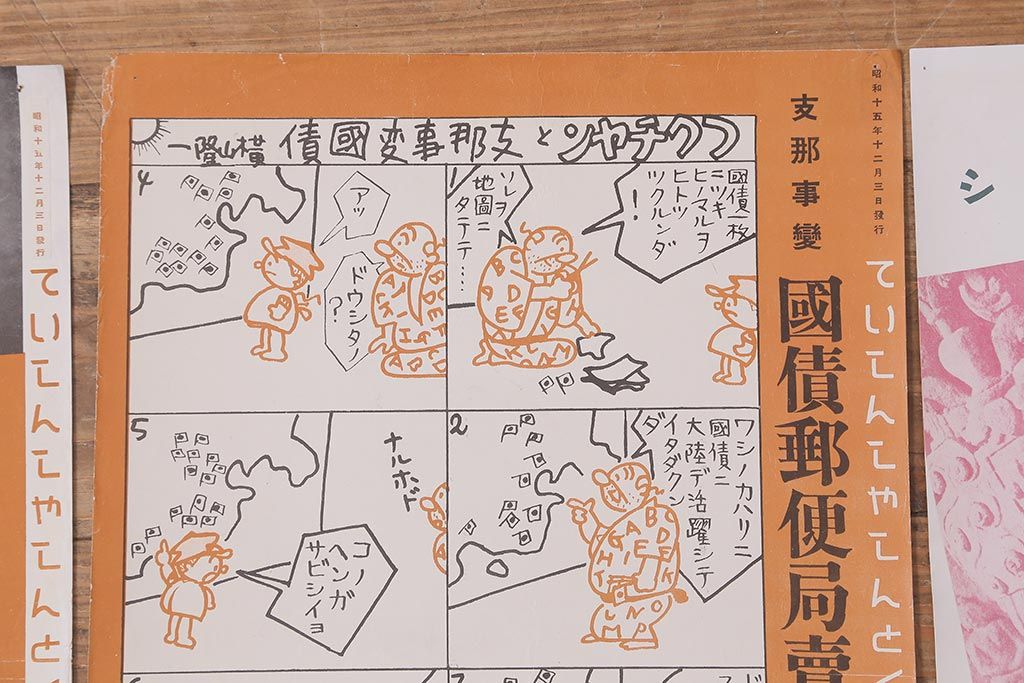 シ
昭和十五年十二月三日發行
ていしんしやしんと
支那事變
國債郵便局賣
フクチヤンと支那事変國債 横山隆一
1
國債一枚
ニツキ
ヒノマルヲ
ヒトツ
ツクルンダ
!
ソレヲ
地圖ニ
タテテ…
2
ワシノカハリニ
國債ニ
大陸デ活躍シテ
イタダクン
ダ
4
アッ
ドウシタノ
?
5
ナルホド
コノ
ヘンガ
サビシイヨ
昭和十五年十二月三日發行
ていしんしやしんと